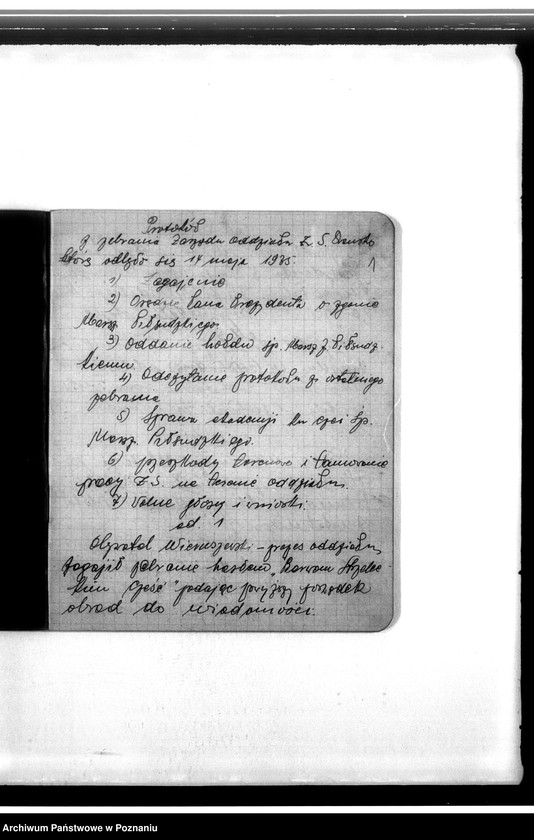 Protokół
z zebrania Zarządu oddziału Z. S.
które odbyło się 14 maja 1935.
1
1) Zagajenie
2) Orędzie Pana Prezydenta o zgonie
Marsz. Piłsudzkiego
3) Oddanie hołdu śp. Marsz. J. Piłsudz-
kiemu.
4) Odczytanie protokołu z ostatniego
zebrania
5) Sprawa akademji ku czci śp.
Marsz. Piłsudzkiego.
6) przeszkody i tamowanie
pracy Z. S. na terenie oddziału.
7) Wolne głosy i wnioski.
ad. 1
Obywatel Wieruszewski – prezes oddziału
zagaił zebranie hasłem „Barwom Strzelec-
kim Cześć" podając powyższy porządek
obrad do wiadomości.
Archiwum Państwowe w Poznaniu